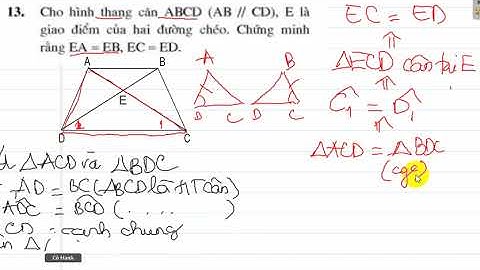 13. Cho hình thang cân ABCD (AB // CD), E là
giao điểm của hai đường chéo. Chứng minh
rằng EA = EB, EC = ED.
A B
E
D 2 1 C
A B
D C D C
EC = ED
⇑
ΔECD cân tại E
⇑
Ĉ1 = D̂1
⇑
ΔACD = ΔBDC
(cgc)
ΔACD và ΔBDC
AD = BC (ABCD là HT cân)
ADC = BCD (. . . . )
CD = cạnh chung
Cô Hạnh